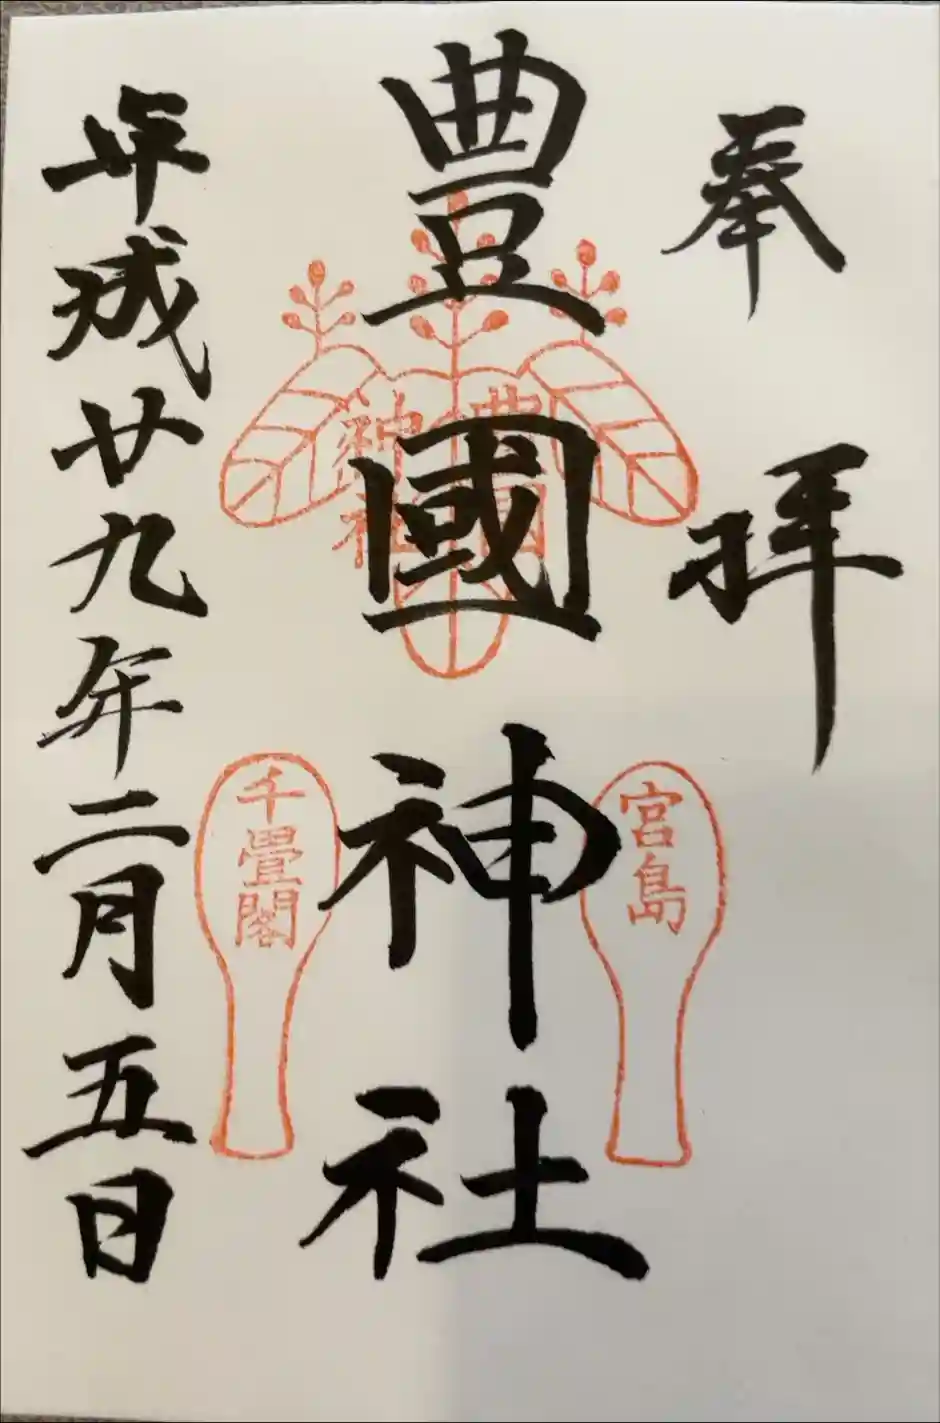 奉拝
豊國神社
豊國
神社
宮島
千畳閣
平成廿九年二月五日